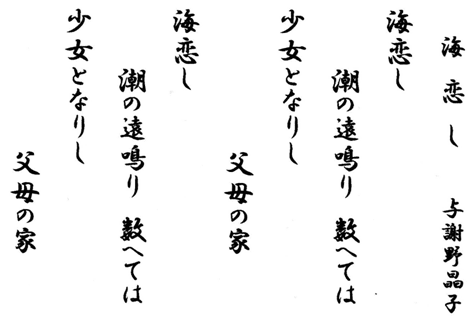 海恋し　与謝野晶子
海恋し
潮の遠鳴り　数へては
少女となりし
父母の家
海恋し
潮の遠鳴り　数へては
少女となりし
父母の家